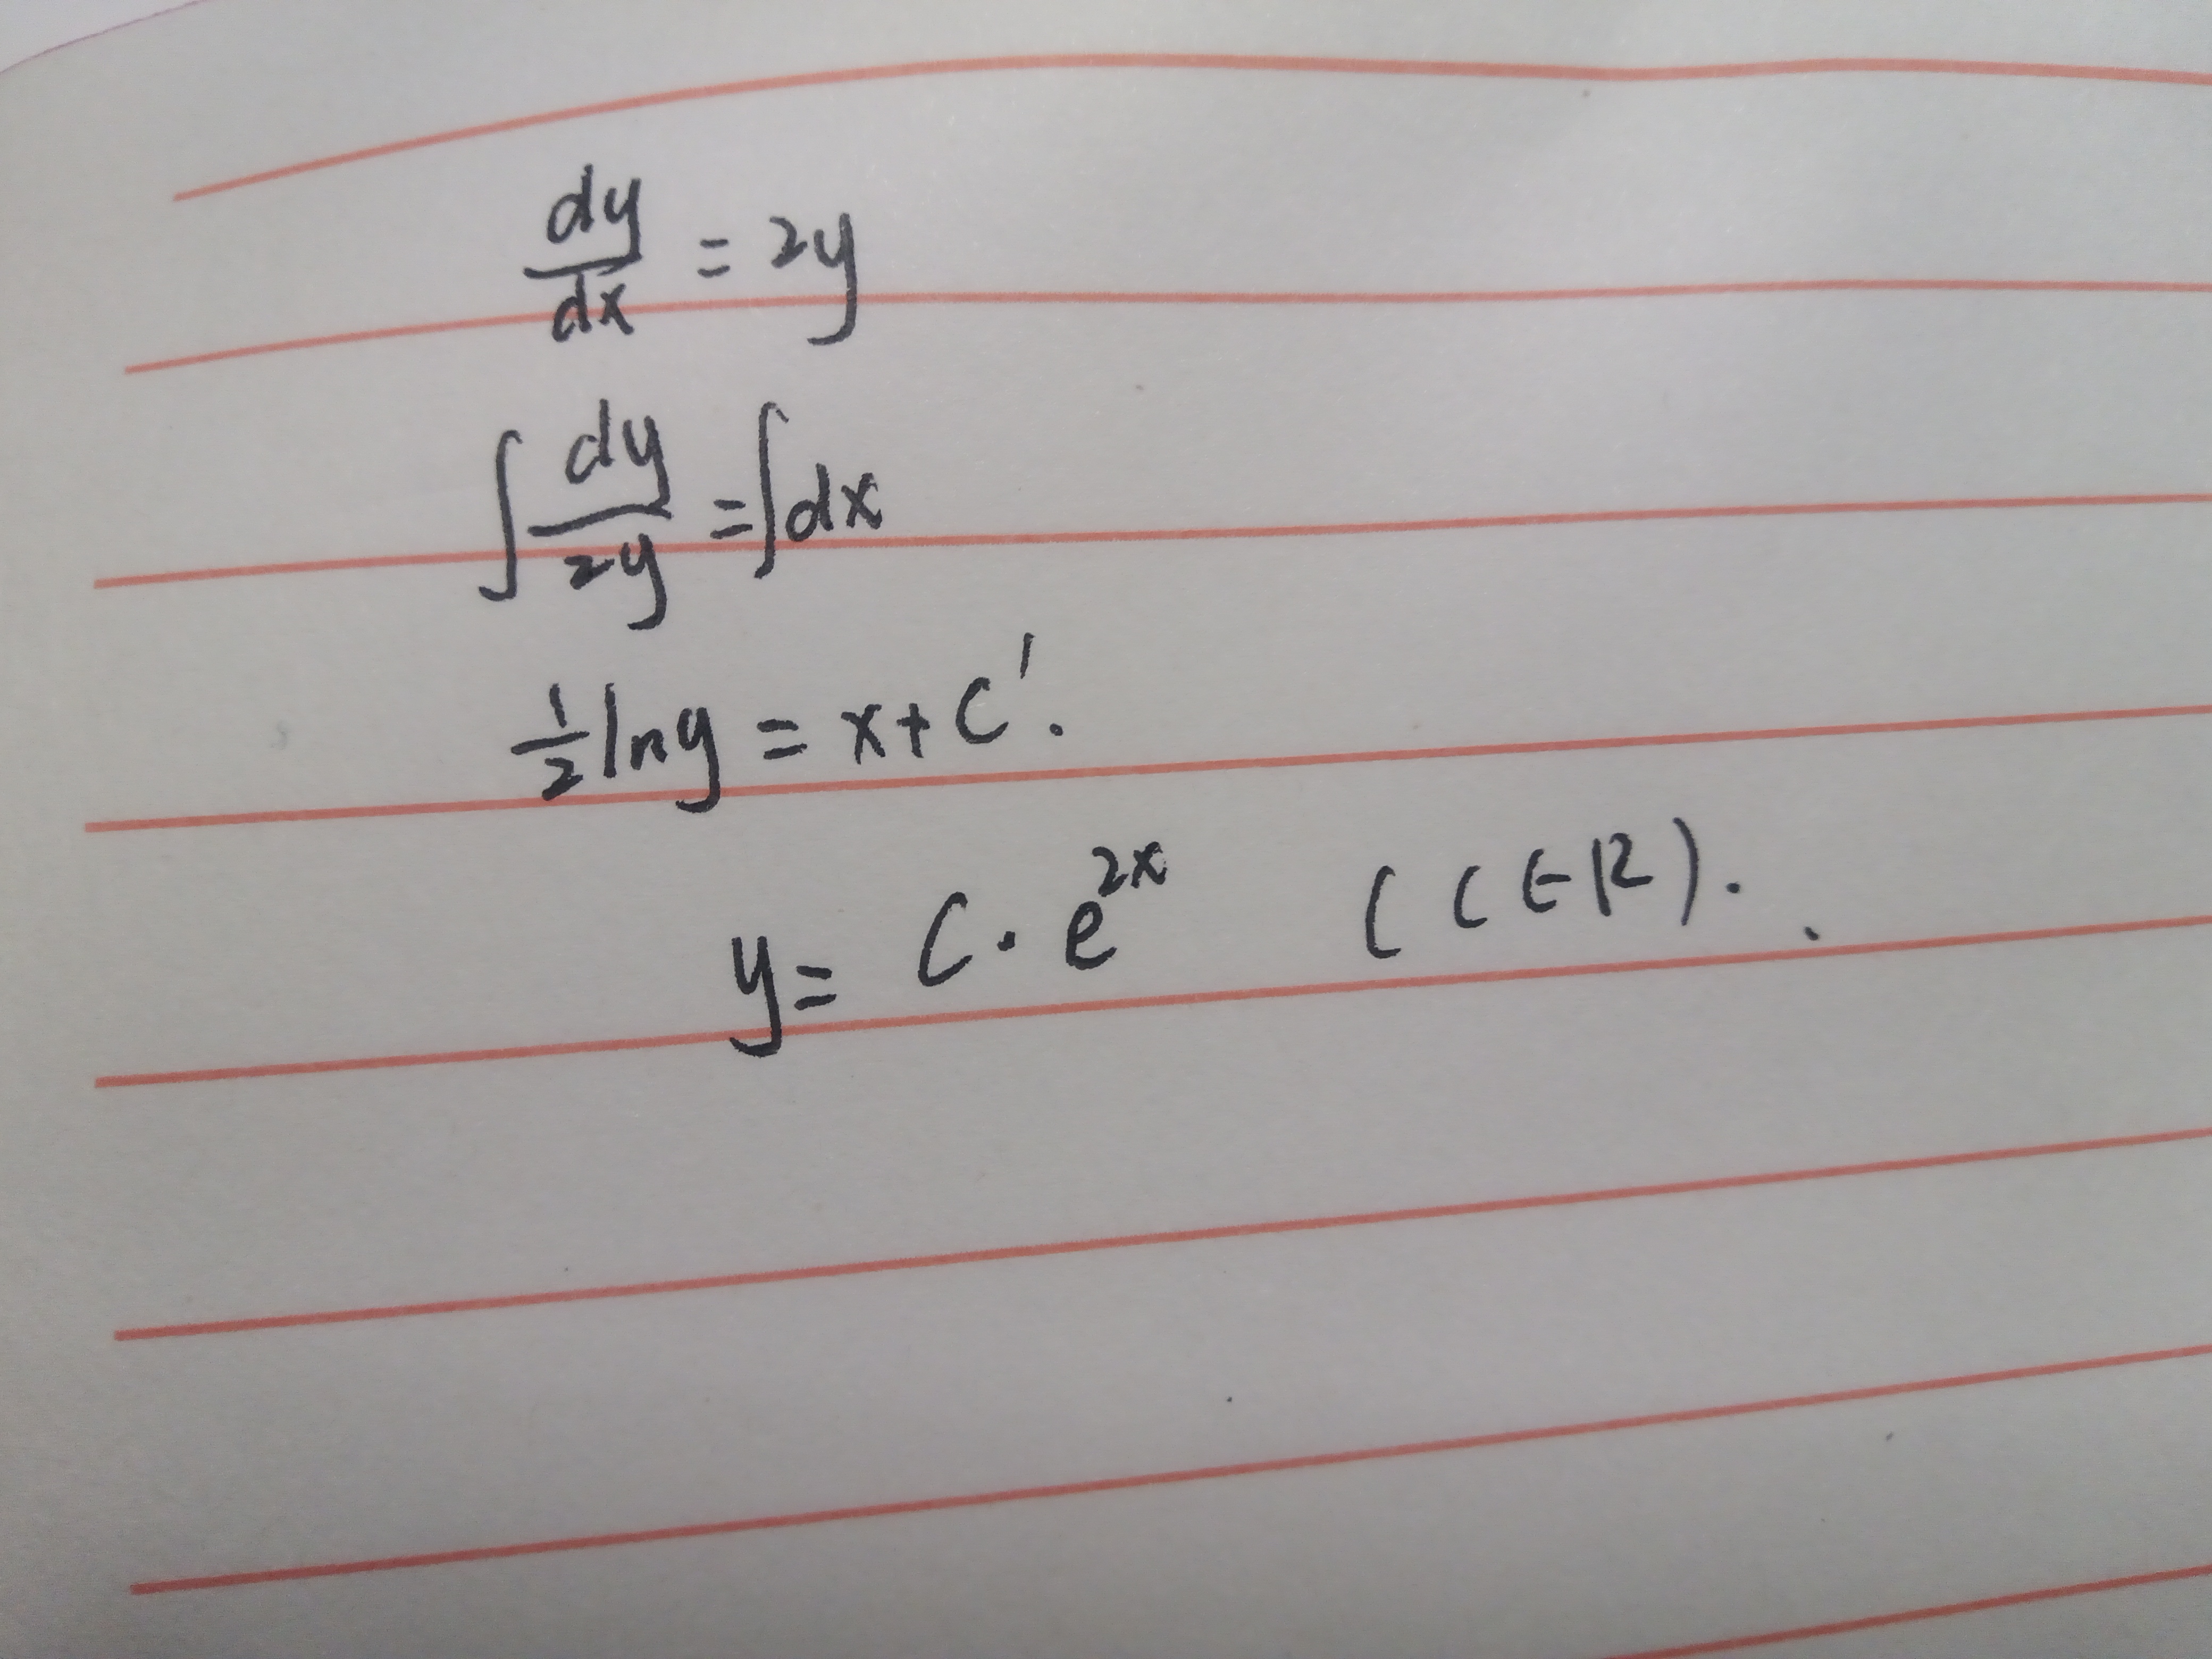 dy/dx = 2y
∫ dy/2y = ∫dx
1/2 lny = x + C'.
y = C · e^2x (C ∈ R).